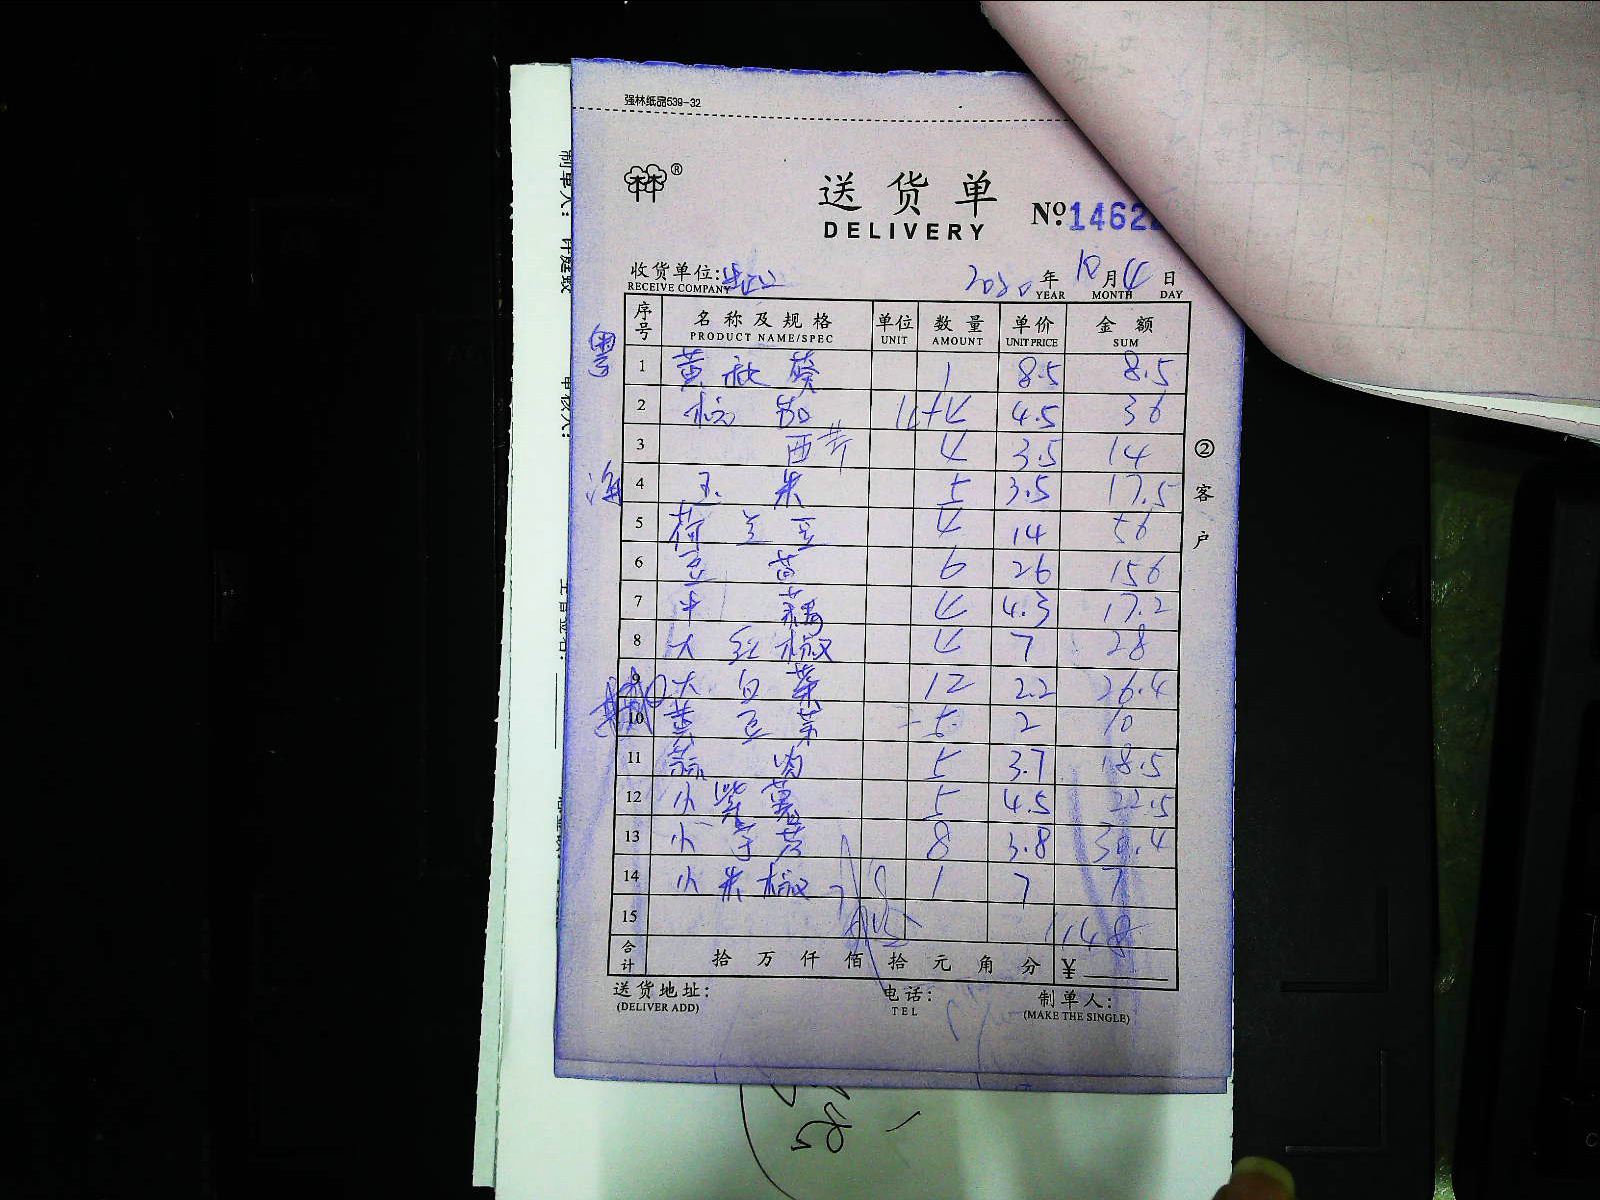 强林纸品539-32
林林®
送货单
DELIVERY
Nº 1462
收货单位:
RECEIVE COMPANY
2020年10月4日
YEAR MONTH DAY
序号 名称及规格 单位 数量 单价 金额
PRODUCT NAME/SPEC UNIT AMOUNT UNIT PRICE SUM
1 黄秋葵 1 8.5 8.5
2 4+4 4.5 36
3 西芹 4 3.5 14
4 玉米 5 3.5 17.5
5 荷兰豆 4 14 56
6 豆苗 6 26 156
7 4 4.3 17.2
8 大红椒 4 7 28
9 大白菜 12 2.2 26.4
10 黄豆芽 5 2 10
11 蒜肉 5 3.7 18.5
12 小紫薯 5 4.5 22.5
13 小芋艿 8 3.8 30.4
14 小米椒 1 7 7
15
合计 拾万仟佰拾元角分 ¥
送货地址: 电话: 制单人:
(DELIVER ADD) TEL (MAKE THE SINGLE)
②客户
粤
海
制单人:
审核人: